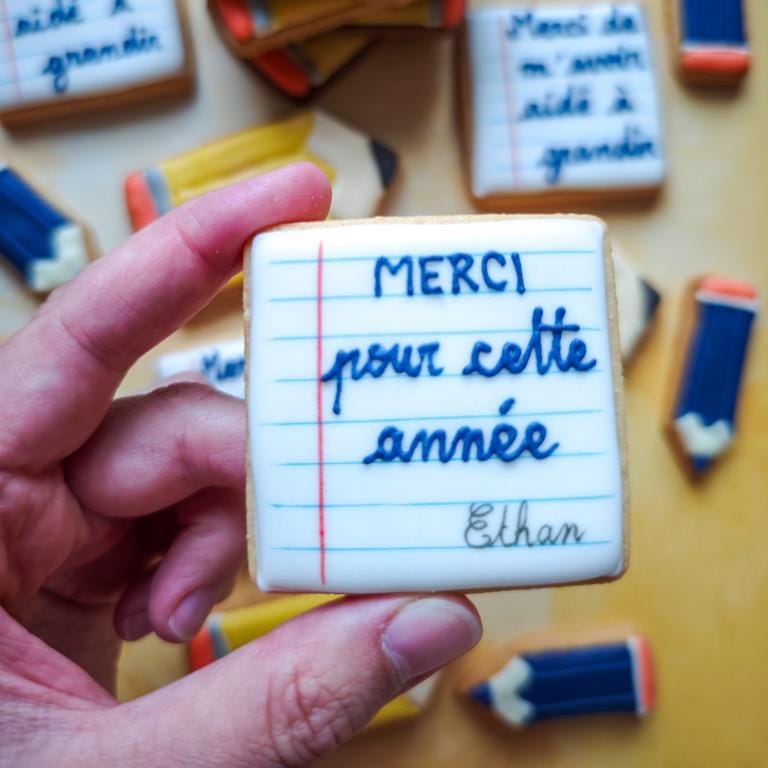 aidé à
grandir
Merci de
m'avoir
aidé à
grandir
MERCI
pour cette
année
Ethan
Mer